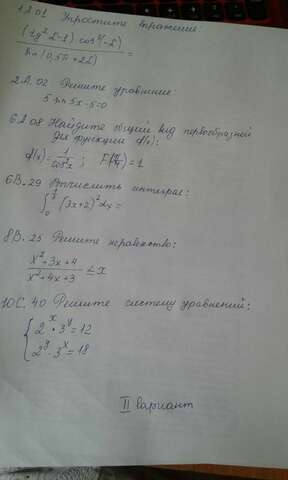 1.А.01 Упростите выражение:
(tg²α-1) cos²(-α)
sin(0,5π+2α) =
2.А.02 Решите уравнение:
5 sin 5x - 5=0
6.А.08 Найдите общий вид первообразной
для функции f(x):
f(x)= 1/cos²x ; F(π/4)=1
6В.29 Вычислить интеграл:
∫₀ (3x+2)²dx=
8В.25 Решите неравенство:
x²+3x+4
x²+4x+3 ≤ x
10С.40 Решите систему уравнений:
2ˣ · 3ʸ=12
2ʸ · 3ˣ=18
II вариант